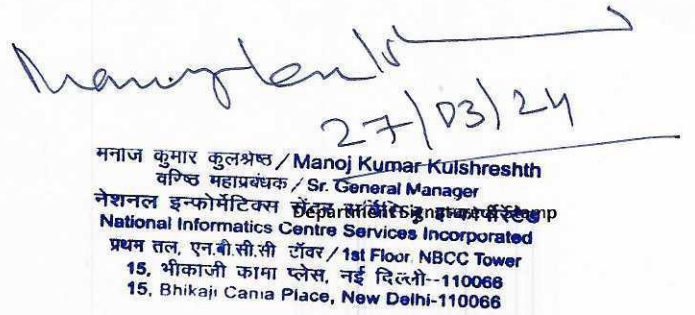 27/03/24
मनाज कुमार कुलश्रेष्ठ / Manoj Kumar Kulshreshth
वरिष्ठ महाप्रबंधक / Sr. General Manager
नेशनल इन्फोर्मेटिक्स सेंटर
Department Signature & Stamp
National Informatics Centre Services Incorporated
प्रथम तल, एन.बी.सी.सी टॉवर / 1st Floor NBCC Tower
15, भीकाजी कामा प्लेस, नई दिल्ली--110066
15, Bhikaji Cama Place, New Delhi-110066